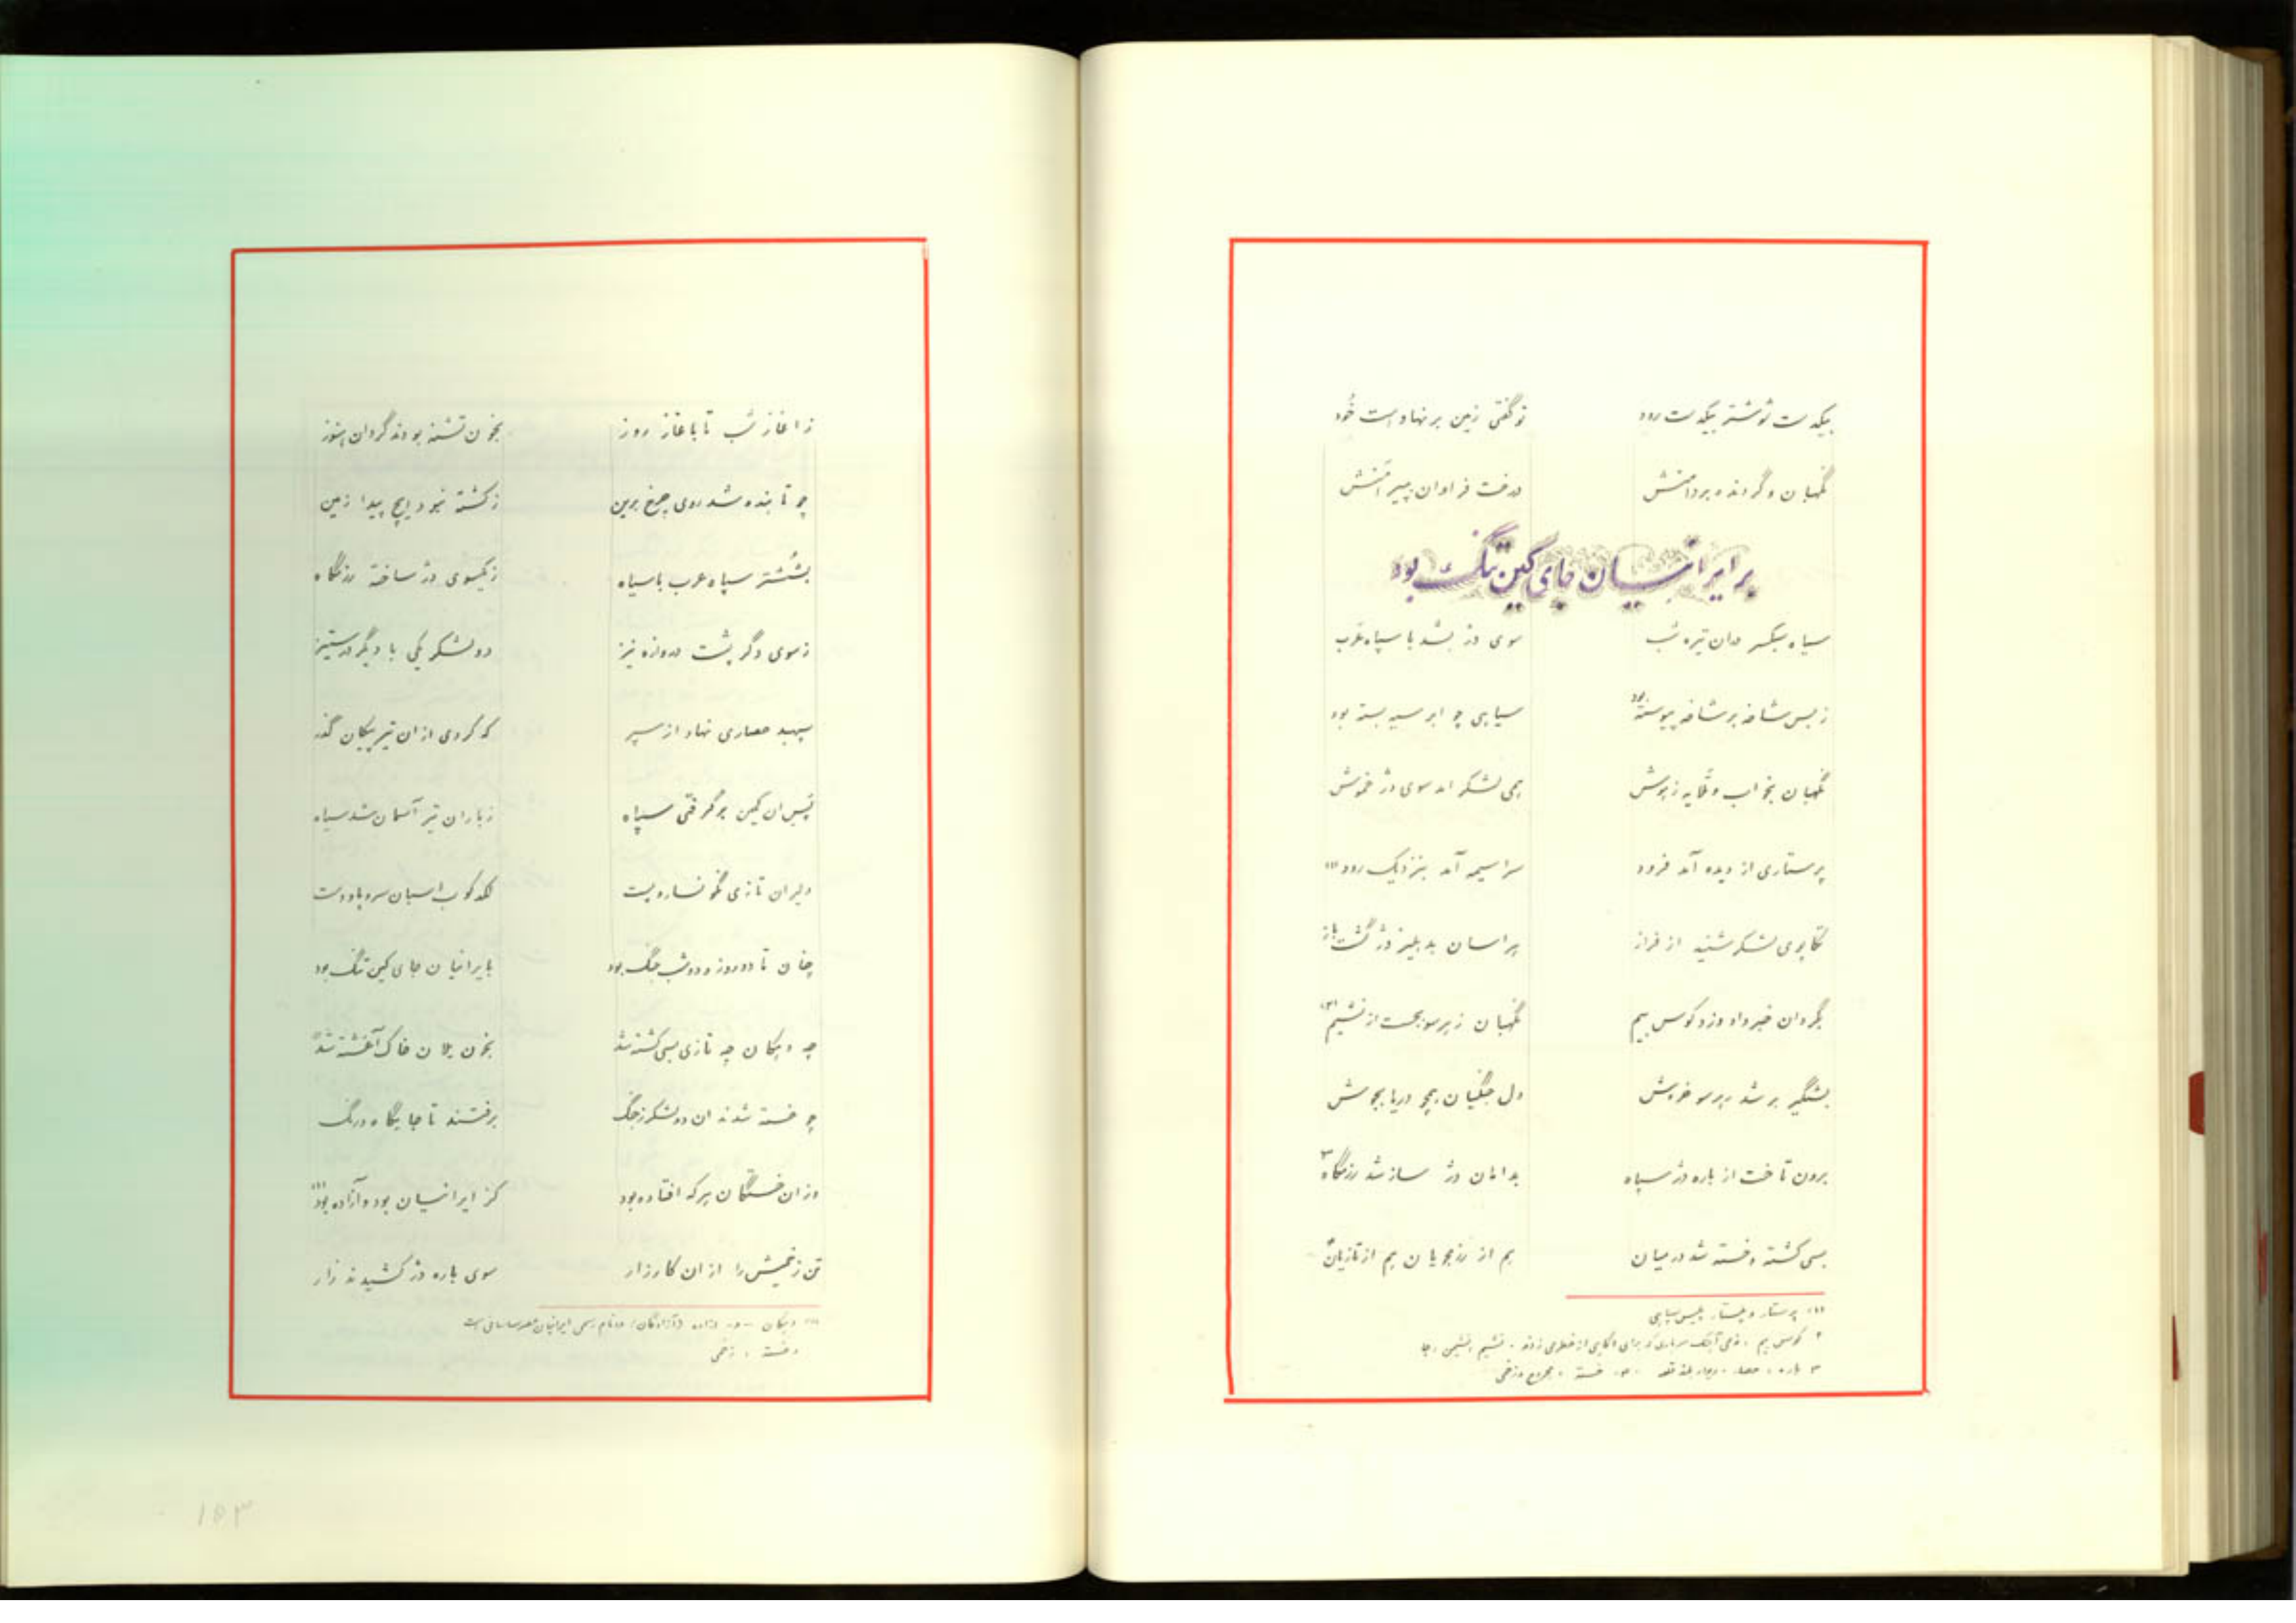 بیکدست شوشتر بیکدست رود تو گفتی زمین بر نهادست خود
نگهبان و گردنده بر دامنش درخت فراوان پیرامنش
بر ایرانیان جای کین تنگ بود
سیاه سیکسر دران تیره شب سوی دژ بشد با سپاه عرب
ز بس شاخه بر شاخه پیوسته بود سیاهی چو ابر سیه بسته بود
نگهبان بخواب و طلایه ز هوش همی لشکر آمد سوی دژ خموش
پرستاری از دیده آمد فرود سراسیمه آمد بنزدیک رود (۱)
تکاپوی لشکر شنید از فراز هراسان بدهلیز دژ گشت باز
بگردان خبر داد و زد کوس بیم نگهبان ز هر سو بجست از نشیم (۲)
بشبگیر بر شد ز هر سو خروش دل جنگیان همچو دریا بجوش
برون تاخت از باره دژ سپاه بدامان دژ ساز شد رزمگاه ۳
بسی کشته و خسته شد در میان هم از رزمجویان هم از تازیان ۴
(۱) پرستار و پیشتار پلیس سپاهی
۲ کوس بیم ، نشیم نشیمن ، جا
۳ باره ، حصار ، دیوار بلند قلعه ۴- خسته ، مجروح و زخمی
ز آغاز شب تا باغاز روز بخون تشنه بودند گردان هنوز
چو تابنده شد روی چرخ برین ز کشته نبود ایچ پیدا زمین
بششتر سپاه عرب با سیاه ز یکسوی دژ ساخته رزمگاه
ز سوی دگر پشت دروازه نیز دو لشکر یکی با دیگر در ستیز
سپهبد حصاری نهاد از سپر که کردی از ان تیر پیکان گذر
پس ان کمین برگرفتی سپاه ز باران تیر آسمان شد سیاه
دلیران تازی نگونسار و پست لگدکوب اسبان سر و پا و دست
چنان تا دو روز و دو شب جنگ بود بایرانیان جای کین تنگ بود
چه ویکان چه تازی بسی کشته شد بخون یلان خاک آغشته شد
چو خسته شدند ان دو لشکر ز جنگ برفتند تا جایگاه درنگ
وزان خستگان هر که افتاده بود کز ایرانیان بود و آزاده بود (۱)
تن زخمیش را از ان کارزار سوی باره دژ کشیدند زار
(۱) ویکان - و آزاده (آزادگان) دو نام رسمی ایرانیان عصر ساسانی است
، خسته ، زخمی
۱۵۳